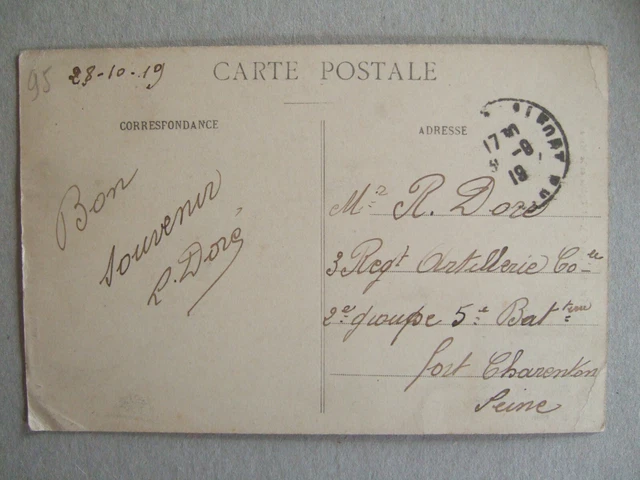 95 28-10-19
CARTE POSTALE
CORRESPONDANCE
Bon
souvenir
L. Doré
ADRESSE
17
19
Mr R. Doré
3 Regt Artillerie Cole
2e groupe 5e Battem
fort Charenton
Seine